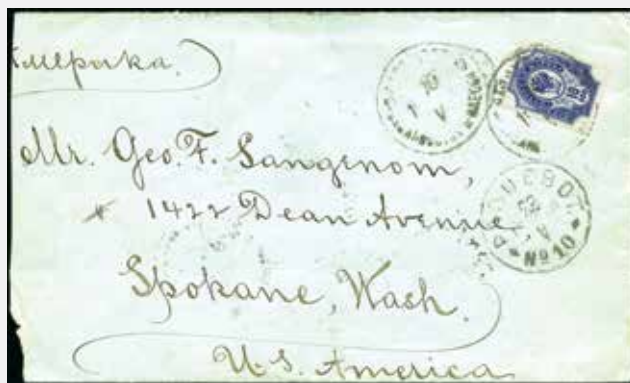 Америка.
Mr. Geo. F. Sangenom,
1422 Dean Avenue
Spokane, Wash.
U. S. America
PAQUEBOT
No 10